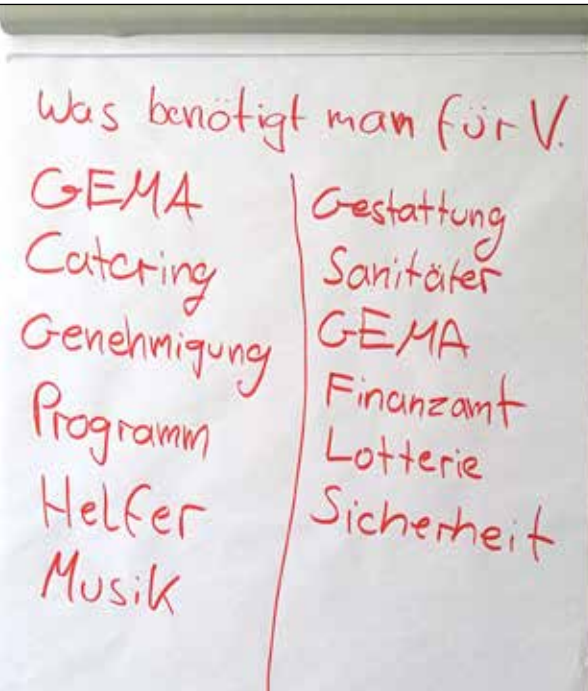 Was benötigt man für V.
GEMA
Catering
Genehmigung
Programm
Helfer
Musik
Gestattung
Sanitäter
GEMA
Finanzamt
Lotterie
Sicherheit